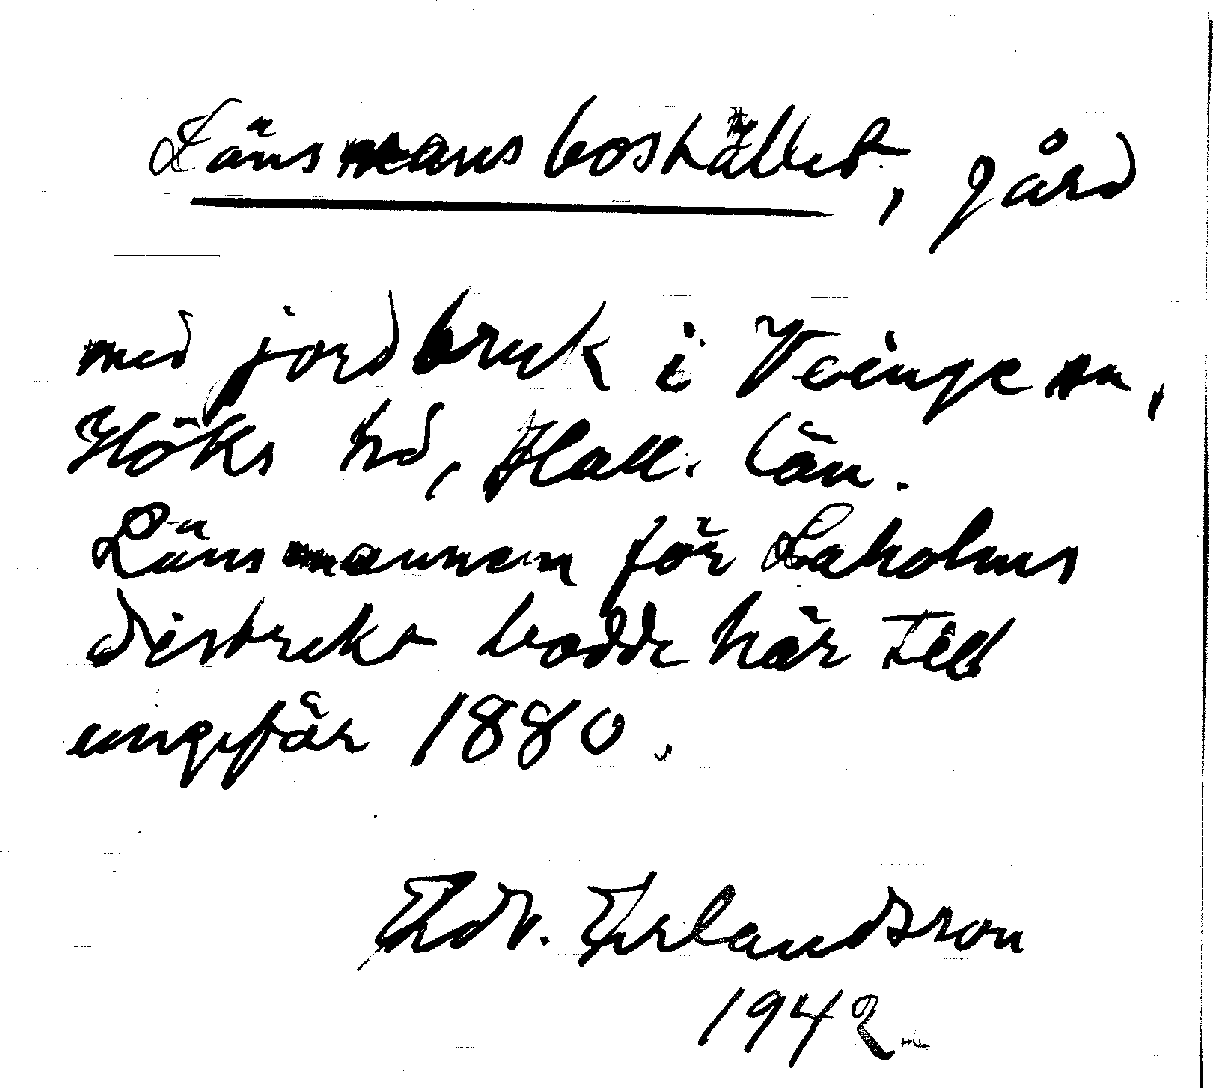 Länsmansbostället, gård
med jordbruk i Veinge sn,
Höks hd, Hall. län.
Länsmannen för Laholms
distrikt bodde här till
ungefär 1880.
Edv. Erlandsson
1942.